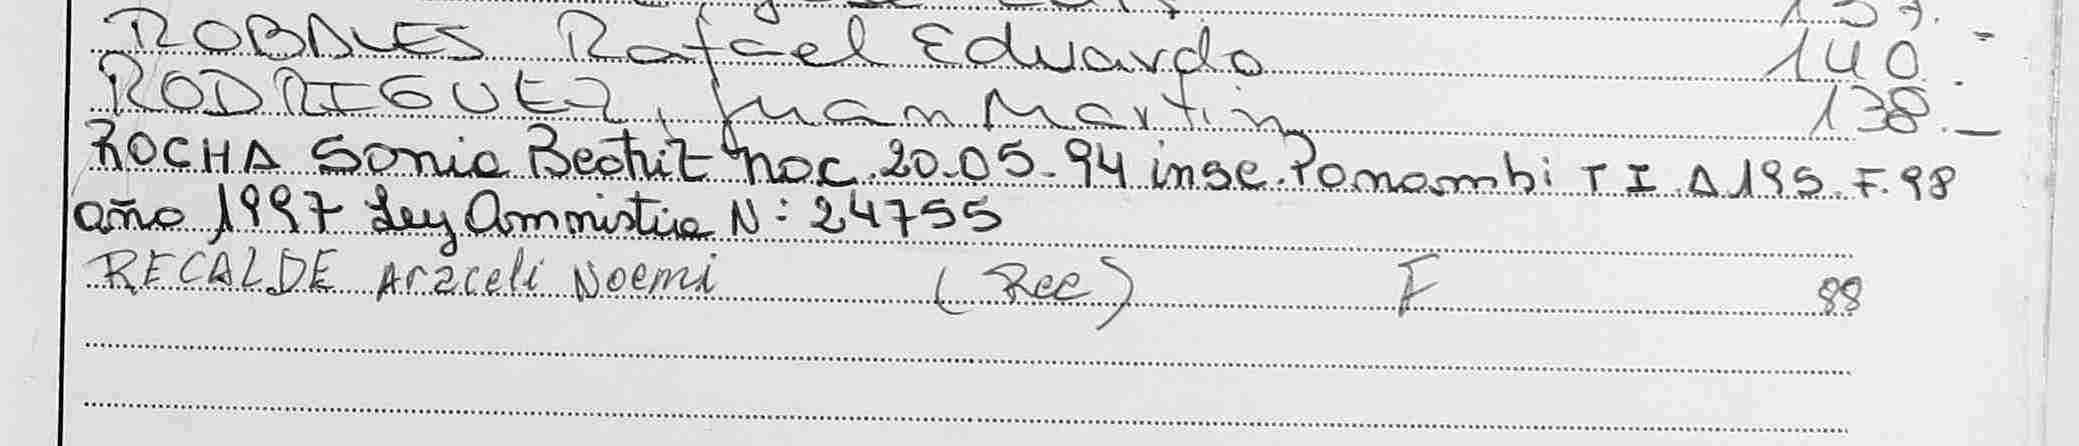 ROBALES Rafael Eduardo 140.-
RODRIGUEZ, Juan Martin 138.-
ROCHA Sonia Beatriz nac. 20.05.94 insc. Ponambi T I A 195. F. 98
año 1997 Ley Amnistia N: 24755
RECALDE Araceli Noemi (Rec) F 88